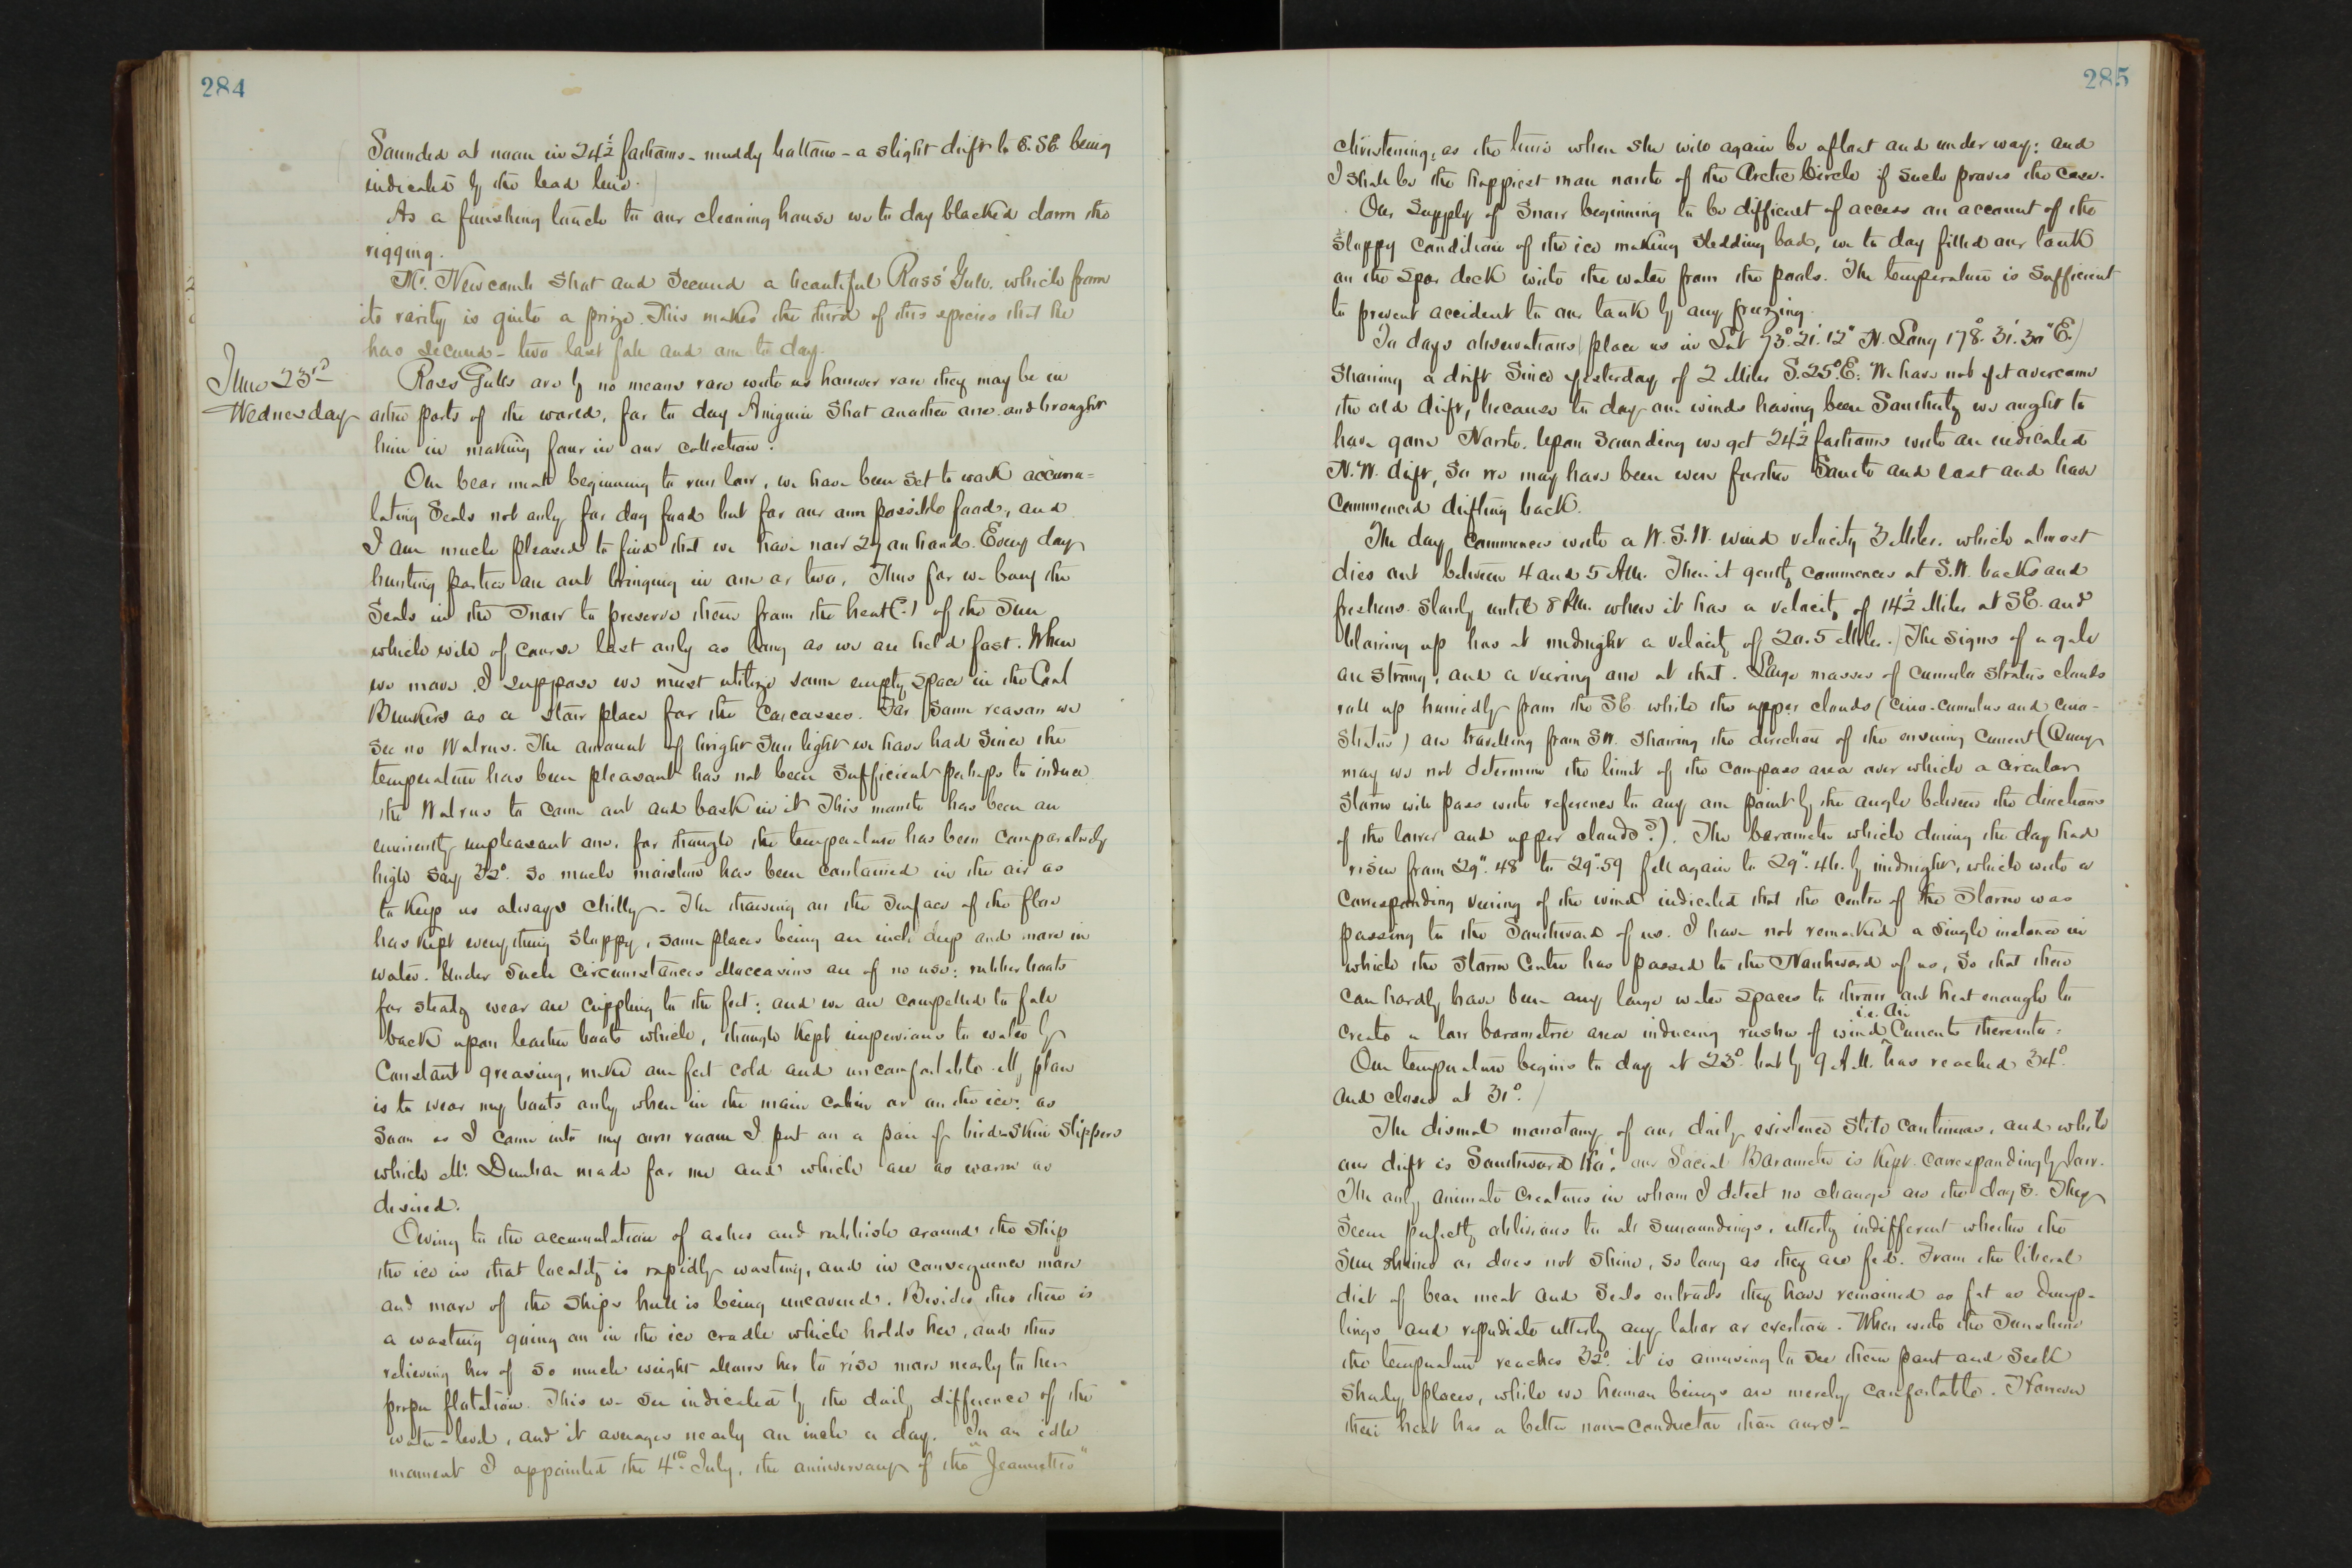 284
Sounded at noon in 24½ fathoms - muddy bottom - a slight drift to E.SE being
indicated by the lead line.
As a finishing touch to our cleaning house we to day blacked down the
rigging.
Mr. Newcomb shot and secured a beautiful Ross' Gull, which from
its rarity is quite a prize. This makes the third of this species that he
has secured - two last fall and one to day.
June 23rd
Wednesday
Ross Gulls are by no means rare with us however rare they may be in
other parts of the world, for to day Aniguin shot another one and brought
him in making four in our collection.
Our bear meat beginning to run low, we have been set to work accumu=
lating Seals not only for dog food but for our own possible food, and
I am much pleased to find that we have now 27 on hand. Every day
hunting parties are out bringing in one or two. Thus far we bury the
Seals in the Snow to preserve them from the heat (?) of the Sun
which will of course last only as long as we are held fast. When
we move I suppose we must utilize some empty space in the Coal
Bunkers as a store place for the Carcasses. For some reason we
see no Walrus. The amount of bright Sun light we have had Since the
temperature has been pleasant has not been Sufficient perhaps to induce
the Walrus to come out and bask in it. This month has been an
eminently unpleasant one, for though the temperature has been comparatively
high say 32°. so much moisture has been contained in the air as
to keep us always chilly. The thawing on the Surface of the floe
has kept everything sloppy, some places being an inch deep and more in
water. Under such circumstances Moccasins are of no use: rubber boots
for steady wear are crippling to the feet: and we are compelled to fall
back upon leather boots which, though kept impervious to water by
Constant greasing, make our feet cold and uncomfortable. My plan
is to wear my boots only when in the main cabin or on the ice: as
soon as I come into my own room I put on a pair of bird-skin slippers
which Mr. Dunbar made for me and which are as warm as
desired.
Owing to the accumulation of ashes and rubbish around the ship
the ice in that locality is rapidly wasting, and in consequence more
and more of the ships hull is being uncovered. Besides this there is
a wasting going on in the ice cradle which holds her, and thus
relieving her of so much weight allows her to rise more nearly to her
proper flotation. This we see indicated by the daily difference of the
water-level, and it averages nearly an inch a day. In an idle
moment I appointed the 4th July, the anniversary of the "Jeannette's"
285
christening, as the time when she will again be afloat and under way: and
I shall be the happiest man north of the Arctic Circle if such proves the case.
Our Supply of Snow beginning to be difficult of access on account of the
sloppy condition of the ice making sledding bad, we to day filled our tank
on the spar deck with the water from the pools. The temperature is Sufficient
to prevent accident to our tank by any freezing.
To days observations place us in Lat 73°. 21'. 12" N. Long 178°. 31'. 30" E.)
Showing a drift Since yesterday of 2 Miles S.25°E. We have not yet overcome
the old drift, because to day our winds having been Southerly we ought to
have gone North. Upon Sounding we get 24½ fathoms with an indicated
N.W. drift, So we may have been even further South and east and have
commenced drifting back.
The day commences with a W.S.W. wind velocity 3 Miles. which almost
dies out between 4 and 5 A.M. Then it gently commences at S.W. backs and
freshens slowly until 8 P.M. when it has a velocity of 14½ Miles at SE. and
blowing up has at midnight a velocity of 20.5 Miles. The signs of a gale
are strong, and a veering one at that. Large masses of cumulo stratus clouds
roll up hurriedly from the SE while the upper clouds (cirro-cumulus and cirro-
stratus) are travelling from SW. Showing the direction of the ensuing Current (Query
may we not determine the limit of the compass area over which a circular
Storm will pass with reference to any one point by the angle between the directions
of the lower and upper clouds?). The barometer which during the day had
risen from 29". 48 to 29".59 fell again to 29". 46. by midnight, which with a
corresponding veering of the wind indicated that the centre of the Storm was
passing to the Southward of us. I have not remarked a Single instance in
which the Storm Centre has passed to the Northward of us, So that there
can hardly have been any large water spaces to throw out heat enough to
create a low barometric area inducing rushes of wind i.e. Air Currents thereinto.
Our temperature begins to day at 23°. but by 9 A.M. has reached 34°.
and closed at 31°.
The dismal monotony of our daily existence still continues, and while
our drift is Southward Ho! our Social Barometer is kept correspondingly low.
The only animate creatures in whom I detect no change are the dogs. They
Seem perfectly oblivious to all surroundings, utterly indifferent whether the
Sun shines or does not shine, so long as they are fed. From the liberal
diet of bear meat and Seals entrails they have remained as fat as dump-
lings and repudiate utterly any labor or exertion. When with the Sunshine
the temperature reaches 32°. it is amusing to see them pant and seek
Shady places, while we human beings are merely comfortable. However
their heat has a better non-conductor than ours -